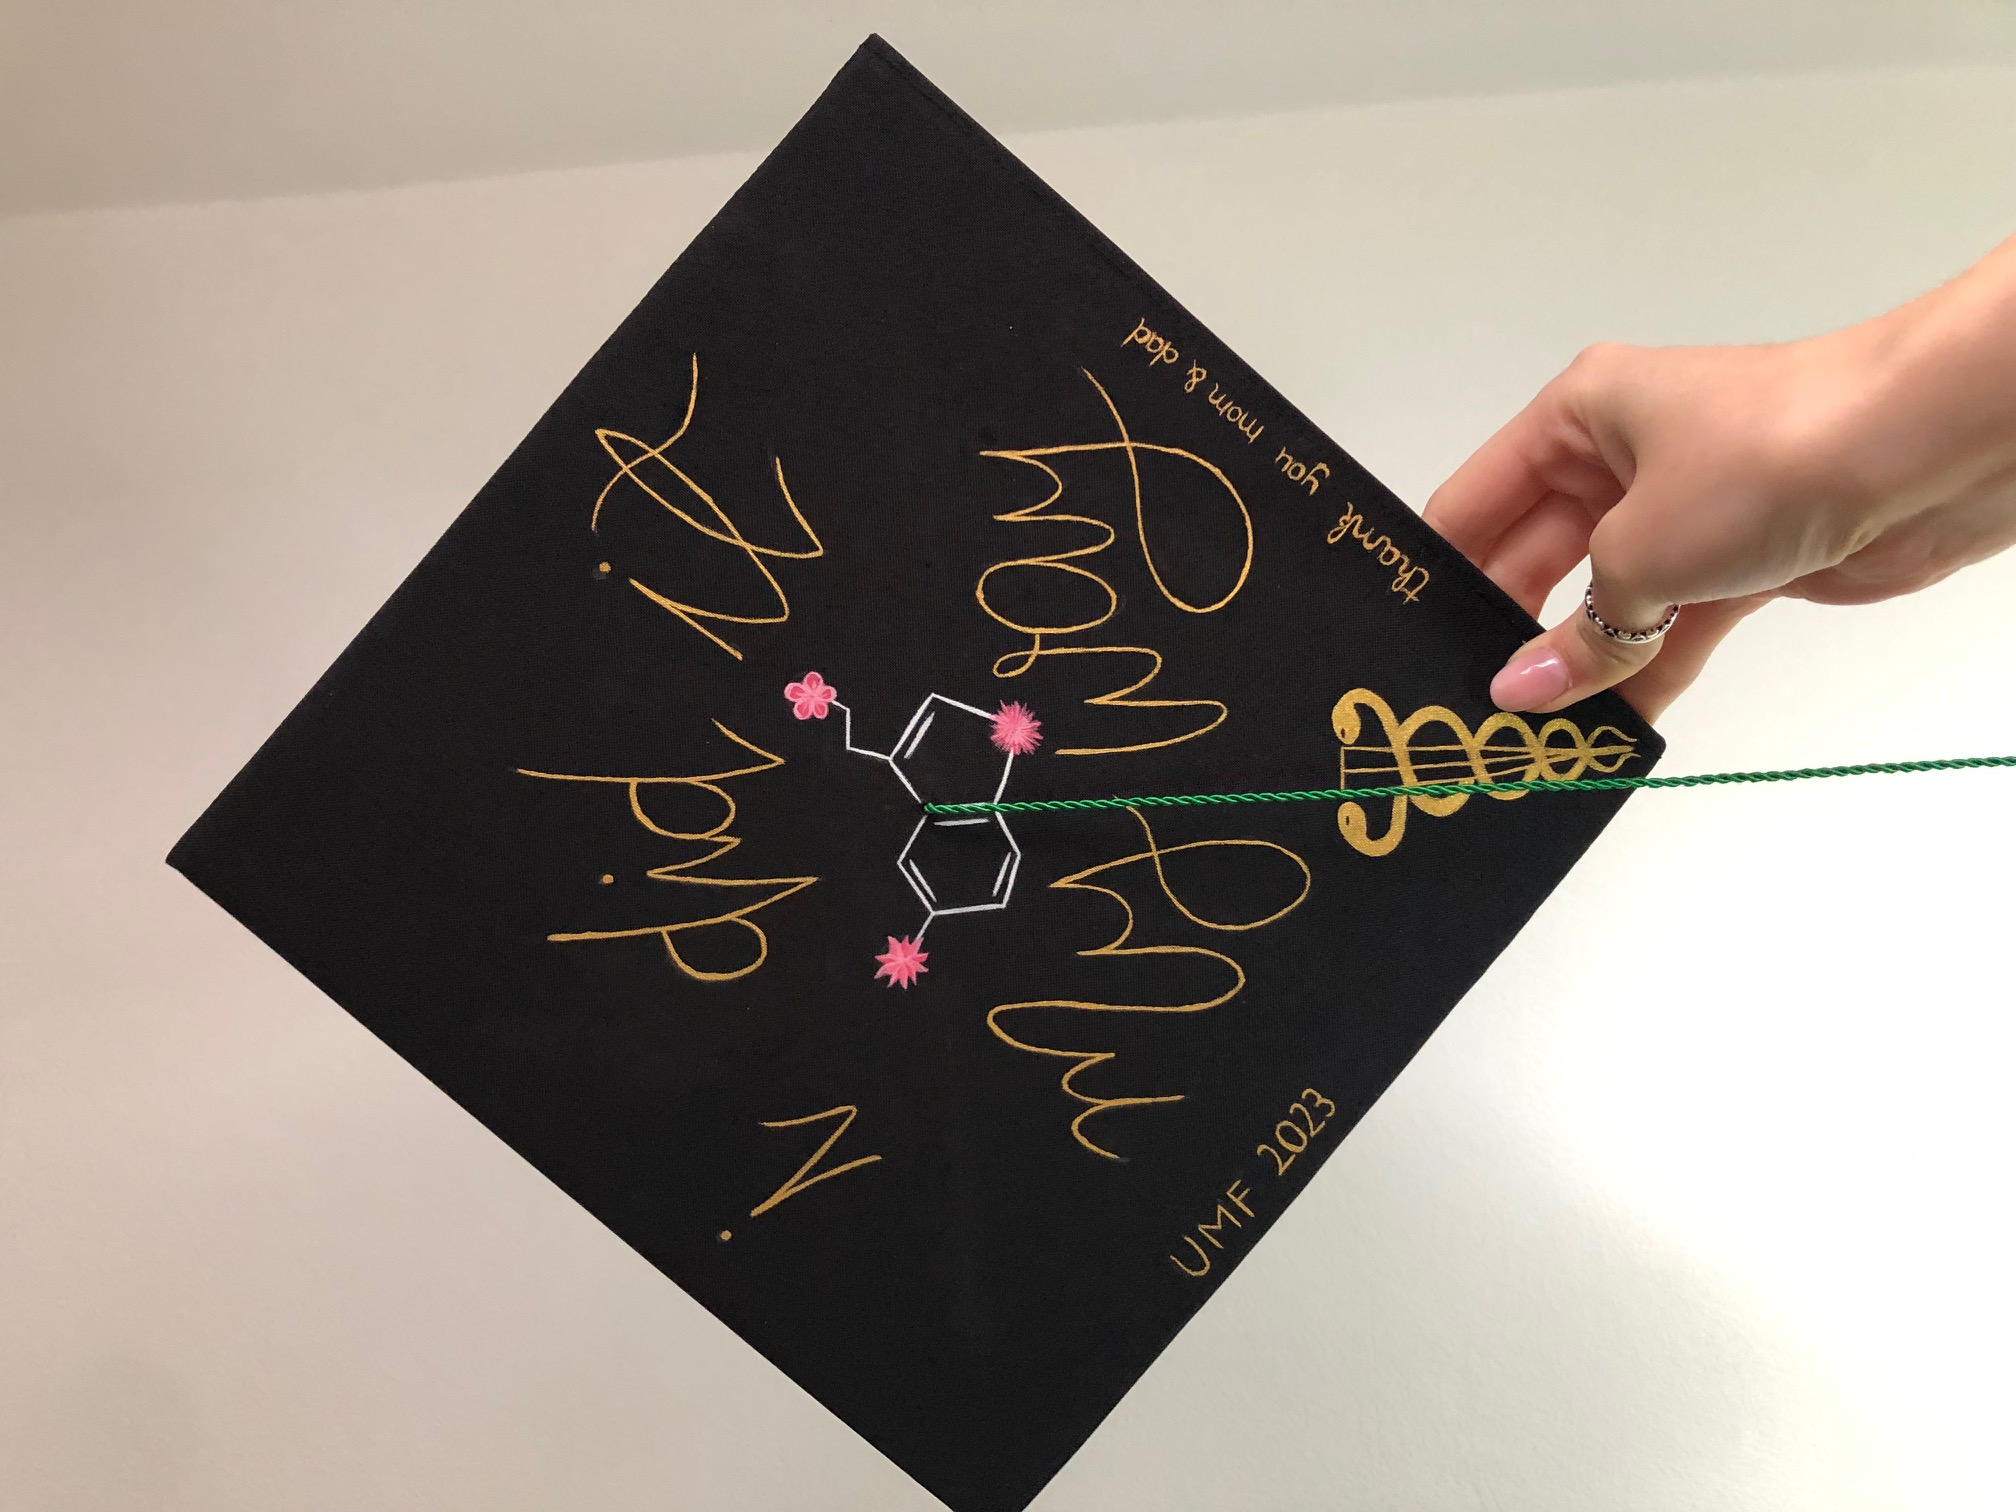 i did it
my way
UMF 2023
thank you mom & dad